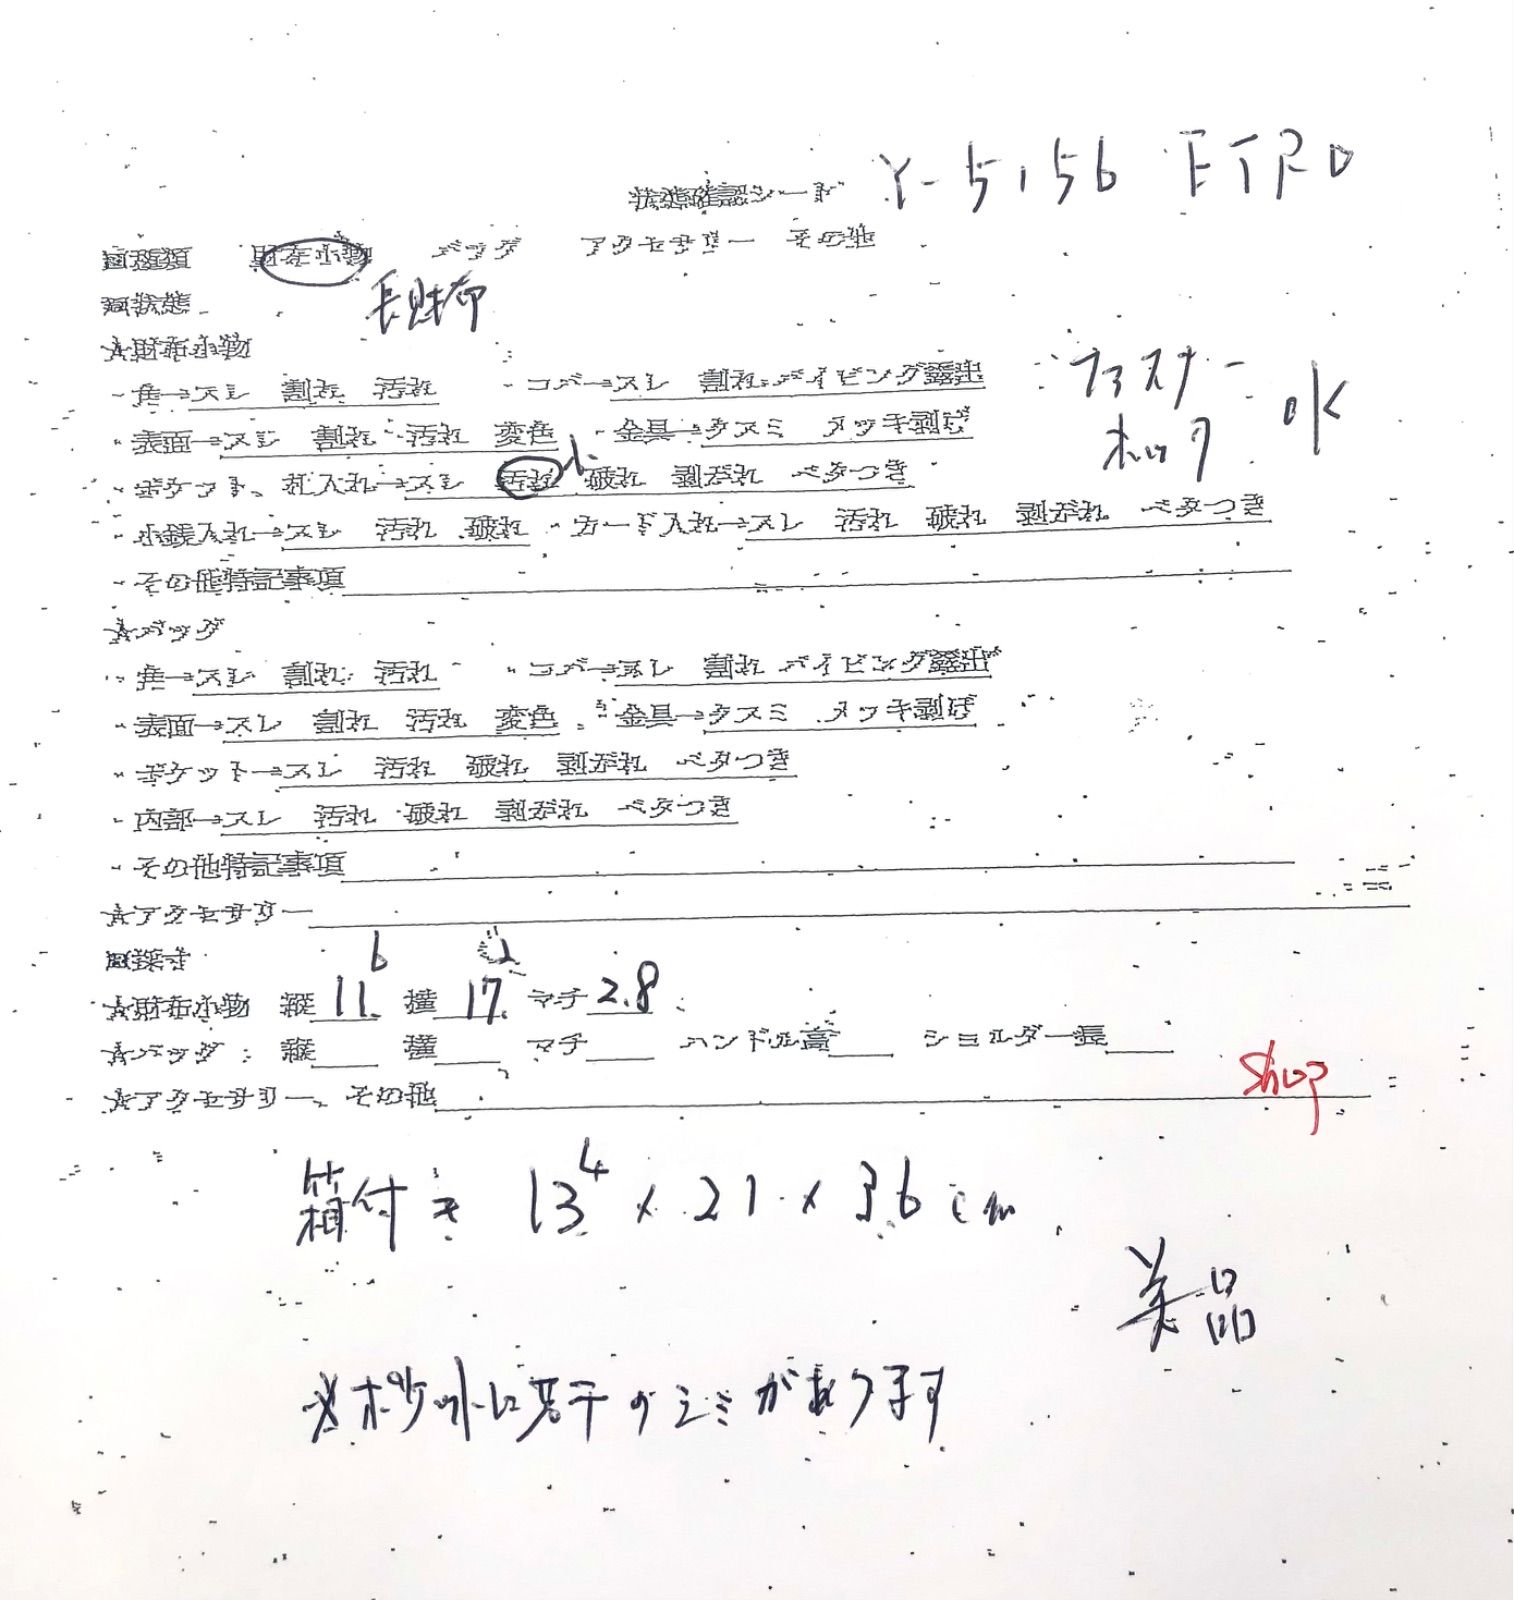 状態確認シート Y-5156 ETRO
□種類 財布小物 バッグ アクセサリー その他
□状態 長財布
☆財布小物
・角→スレ 割れ 汚れ ・コバ→スレ 割れ パイピング露出 ファスナー
・表面→スレ 割れ 汚れ 変色 ・金具→クスミ メッキ剥げ ホック OK
・ポケット、札入れ→スレ 汚れ 小 破れ 剥がれ ベタつき
・小銭入れ→スレ 汚れ 破れ ・カード入れ→スレ 汚れ 破れ 剥がれ ベタつき
・その他特記事項
☆バッグ
・角→スレ 割れ 汚れ ・コバ→スレ 割れ パイピング露出
・表面→スレ 割れ 汚れ 変色 ・金具→クスミ メッキ剥げ
・ポケット→スレ 汚れ 破れ 剥がれ ベタつき
・内部→スレ 汚れ 破れ 剥がれ ベタつき
・その他特記事項
☆アクセサリー
□採寸
☆財布小物 縦 11.6 横 17.2 マチ 2.8
☆バッグ 縦 横 マチ ハンドル高 ショルダー長
☆アクセサリー、その他 Shop
箱付き 13.4 × 21 × 3.6 cm
美品
※ポケットに若干のシミがあります